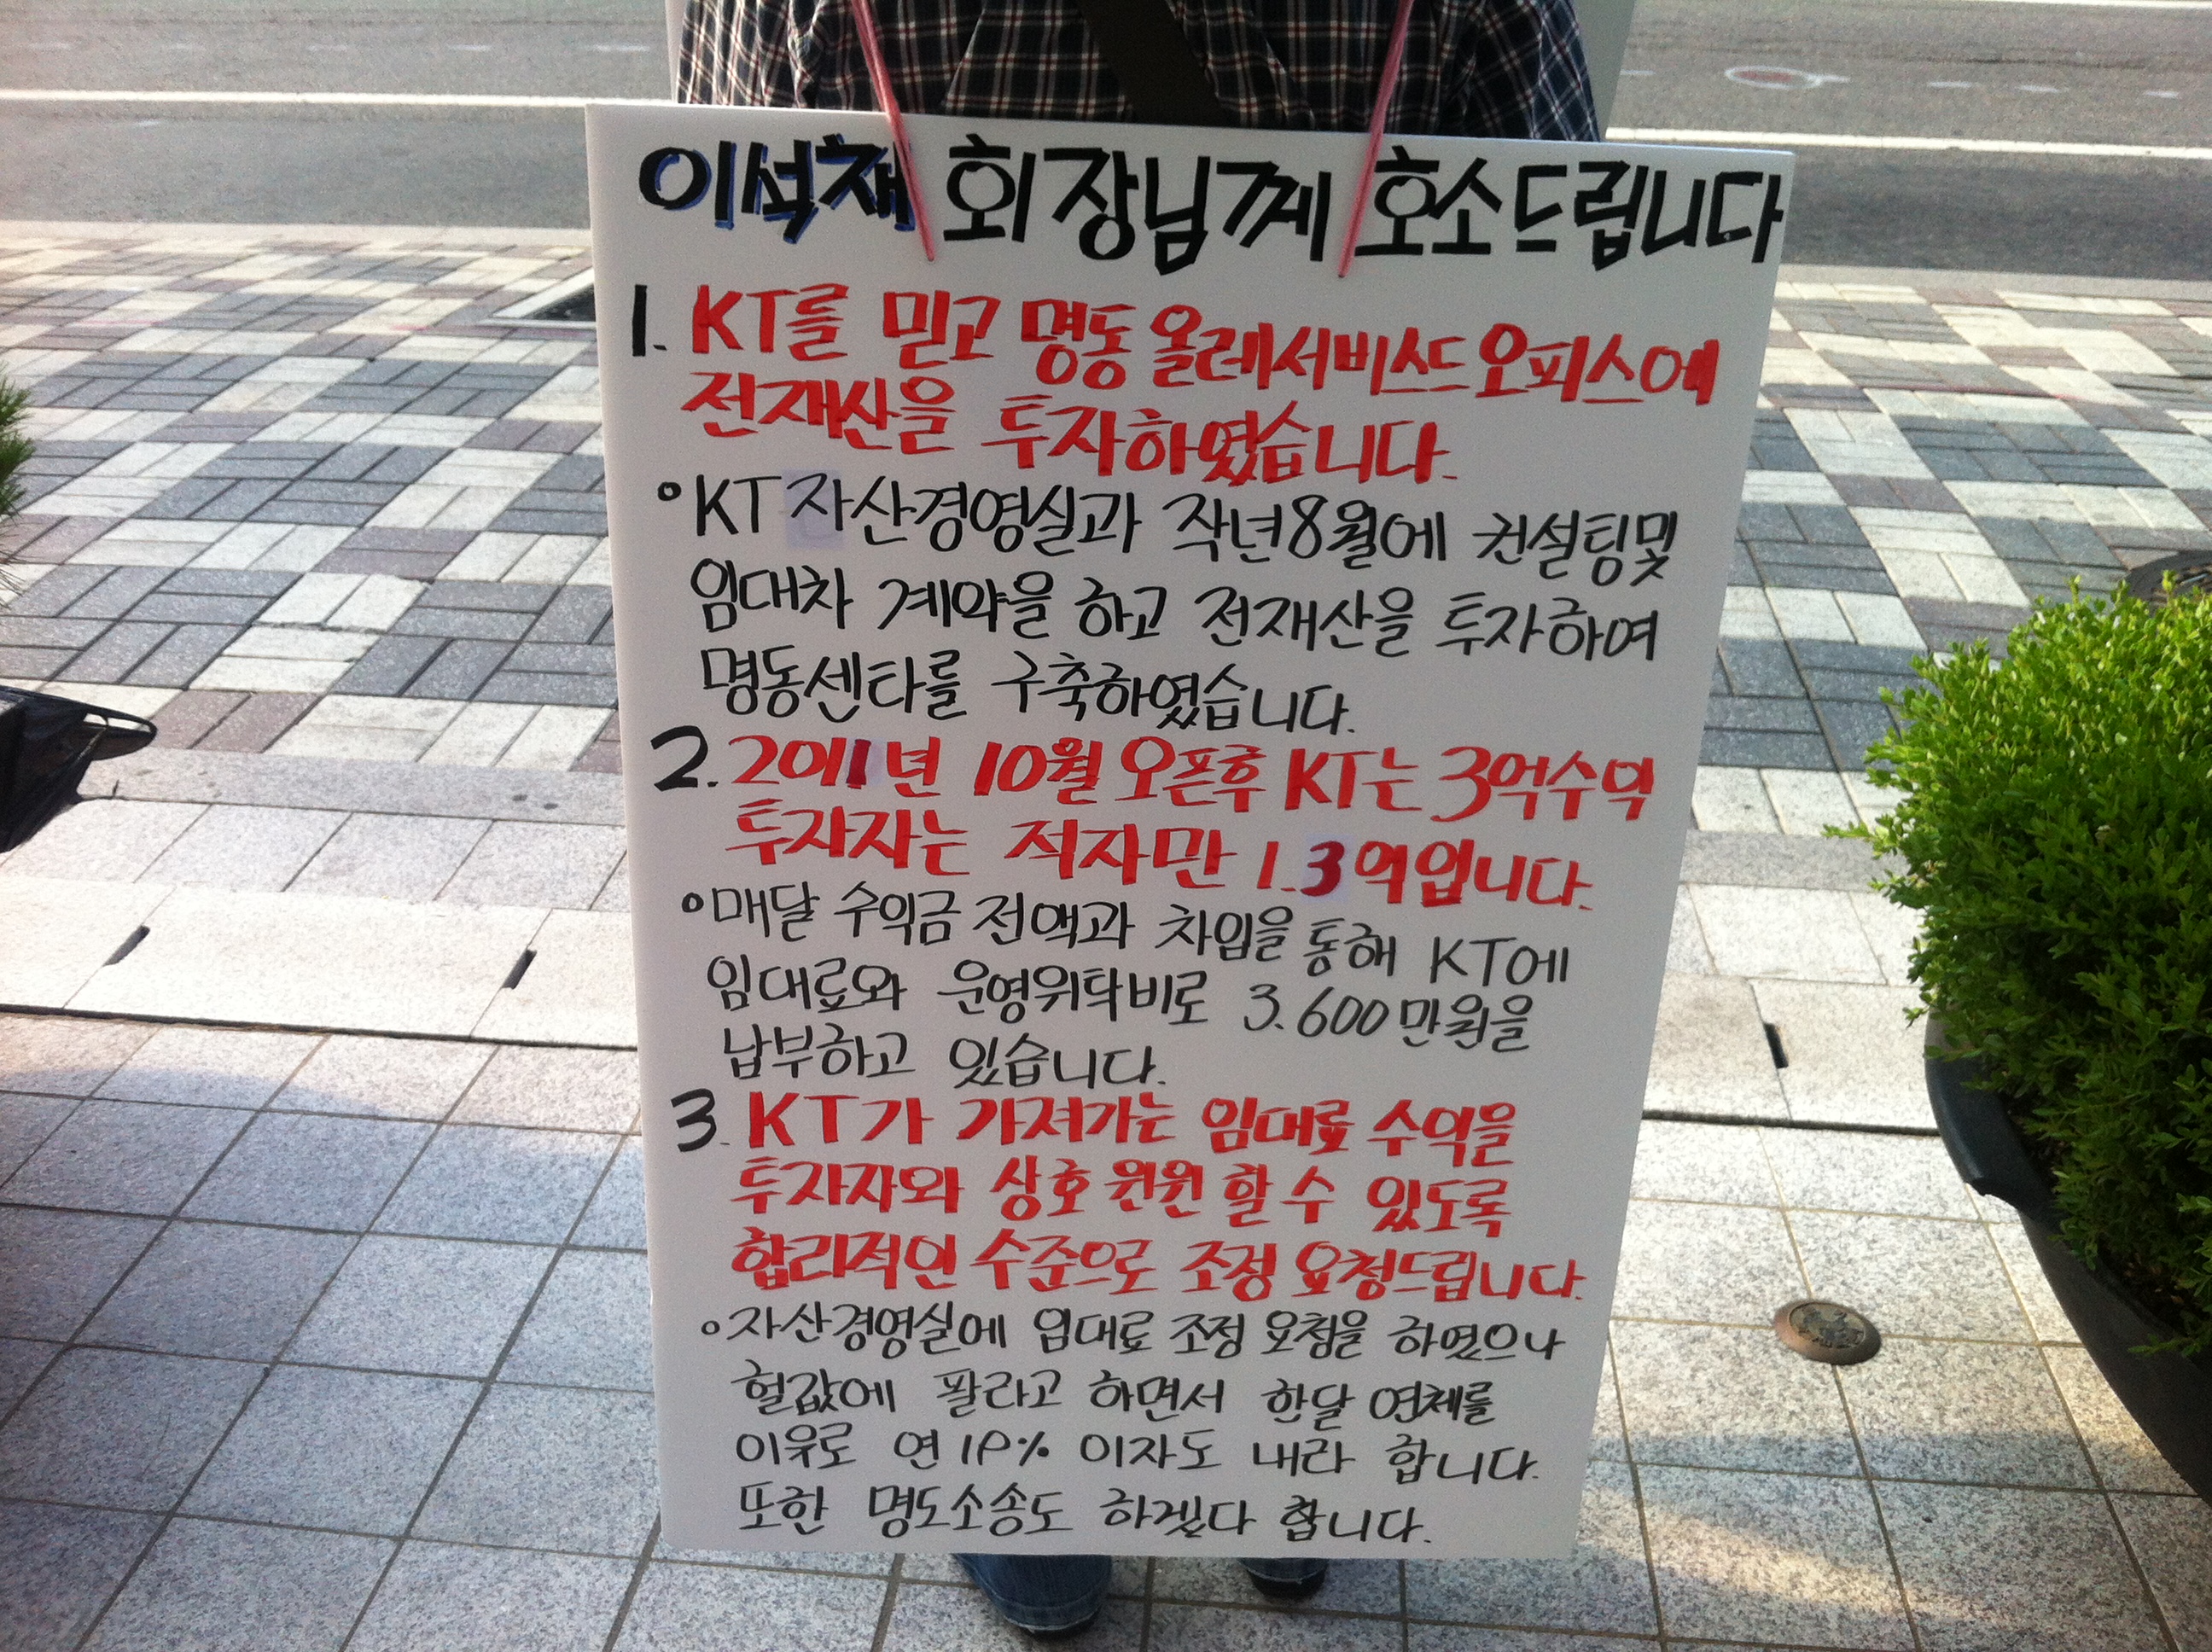 이석채 회장님께 호소드립니다
1. KT를 믿고 명동 올레서비스드오피스에
전재산을 투자하였습니다.
°KT 자산경영실과 작년8월에 컨설팅및
임대차 계약을 하고 전재산을 투자하여
명동센타를 구축하였습니다.
2. 2011년 10월 오픈후 KT는 3억수익
투자자는 적자만 1.3억입니다.
°매달 수익금 전액과 차입을 통해 KT에
임대료와 운영위탁비로 3.600만원을
납부하고 있습니다.
3. KT가 가져가는 임대료 수익을
투자자와 상호 윈윈 할수 있도록
합리적인 수준으로 조정 요청드립니다.
°자산경영실에 임대료 조정 요청을 하였으나
헐값에 팔라고 하면서 한달 연체를
이유로 연 19% 이자도 내라 합니다.
또한 명도소송도 하겠다 합니다.